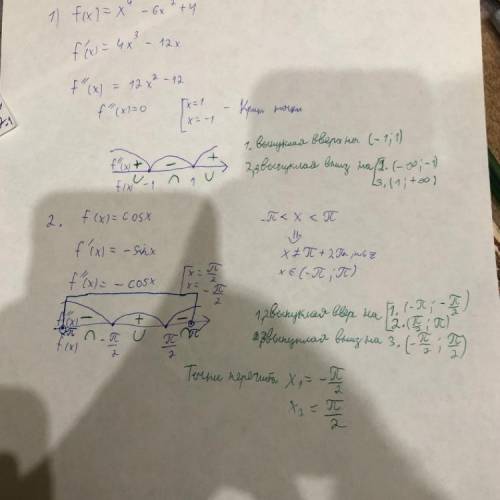 1) f(x) = x⁴ - 6x² + 4
f'(x) = 4x³ - 12x
f''(x) = 12x² - 12
f''(x)=0 [x=1 x=-1 - Крит точки
f''(x) + - +
f(x) -1 ∪ ∩ 1 ∪
1. выпуклая вверх на (-1;1)
2,3 выпуклая вниз на [2. (-∞;-1)
3. (1;+∞)
2. f(x) = cosx
f'(x) = -sinx
f''(x) = -cosx [x = π/2 x = -π/2
-π < x < π
⇓
x ≠ π + 2πn, n∈z
x ∈ (-π; π)
f''(x) - + -
-π π
f(x) ∩ -π/2 ∪ π/2 ∩
1,2 выпуклая ввер на [1. (-π; -π/2)
2. (π/2; π)
3 выпуклая вниз на 3. (-π/2; π/2)
Точки x₁ = -π/2
x₂ = π/2